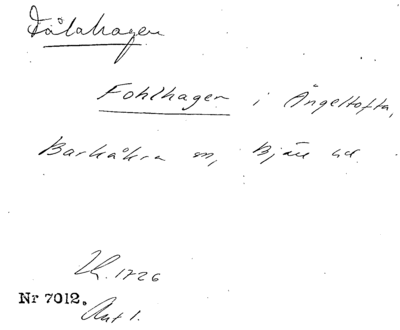 Fålahagen
Fohlhagen i Ängeltofta,
Barkåkra sn, Bjäre hd.
Lk. 1726
Nr 7012.
Akt 1.